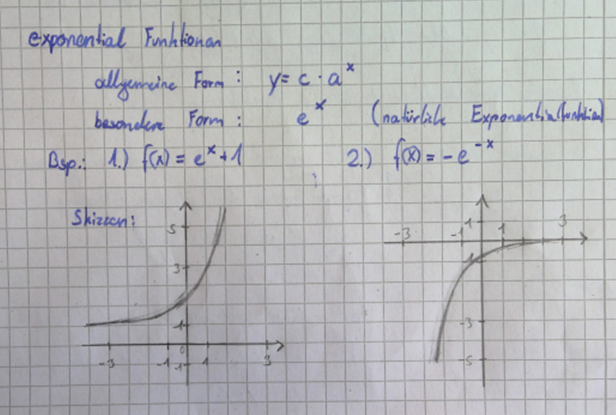 exponential Funktionen
allgemeine Form : y = c · a^x
besondere Form : e^x (natürliche Exponentialfunktion)
Bsp.: 1.) f(x) = e^x + 1 2.) f(x) = -e^-x
Skizzen:
5
3
1
-3 -1 0 1 3
-1
1
-3 -1 1 3
-1
-3
-5